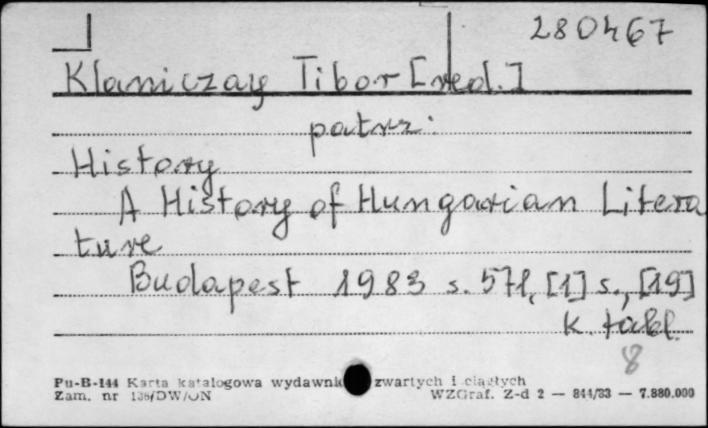 280467
Klaniczay Tibor [red.]
patrz:
History
A History of Hungarian Litera
ture
Budapest 1983 s. 571, [1] s., [19]
k. tabl.
8
Pu-B-144 Karta katalogowa wydawnictw zwartych i ciągłych
Zam. nr 136/DW/ON WZGraf. Z-d 2 — 844/83 — 7.880.000